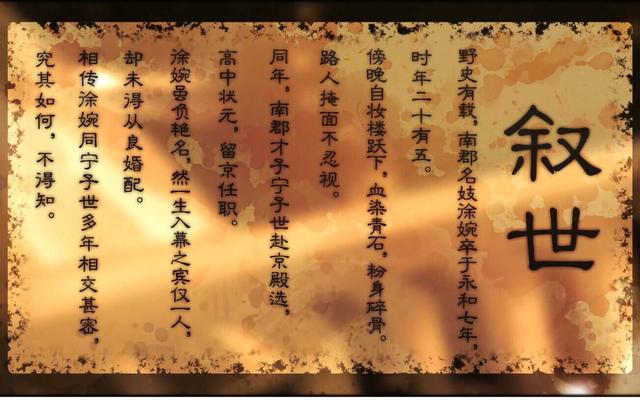 叙世
野史有载，南郡名妓涂婉卒于永和七年，
时年二十有五。
傍晚自妆楼跃下，血染青石，粉身碎骨。
路人掩面不忍视。
同年，南郡才子宁子世赴京殿选，
高中状元，留京任职。
涂婉虽负艳名，然一生入幕之宾仅一人，
却未得从良婚配。
相传涂婉同宁子世多年相交甚密，
究其如何，不得知。